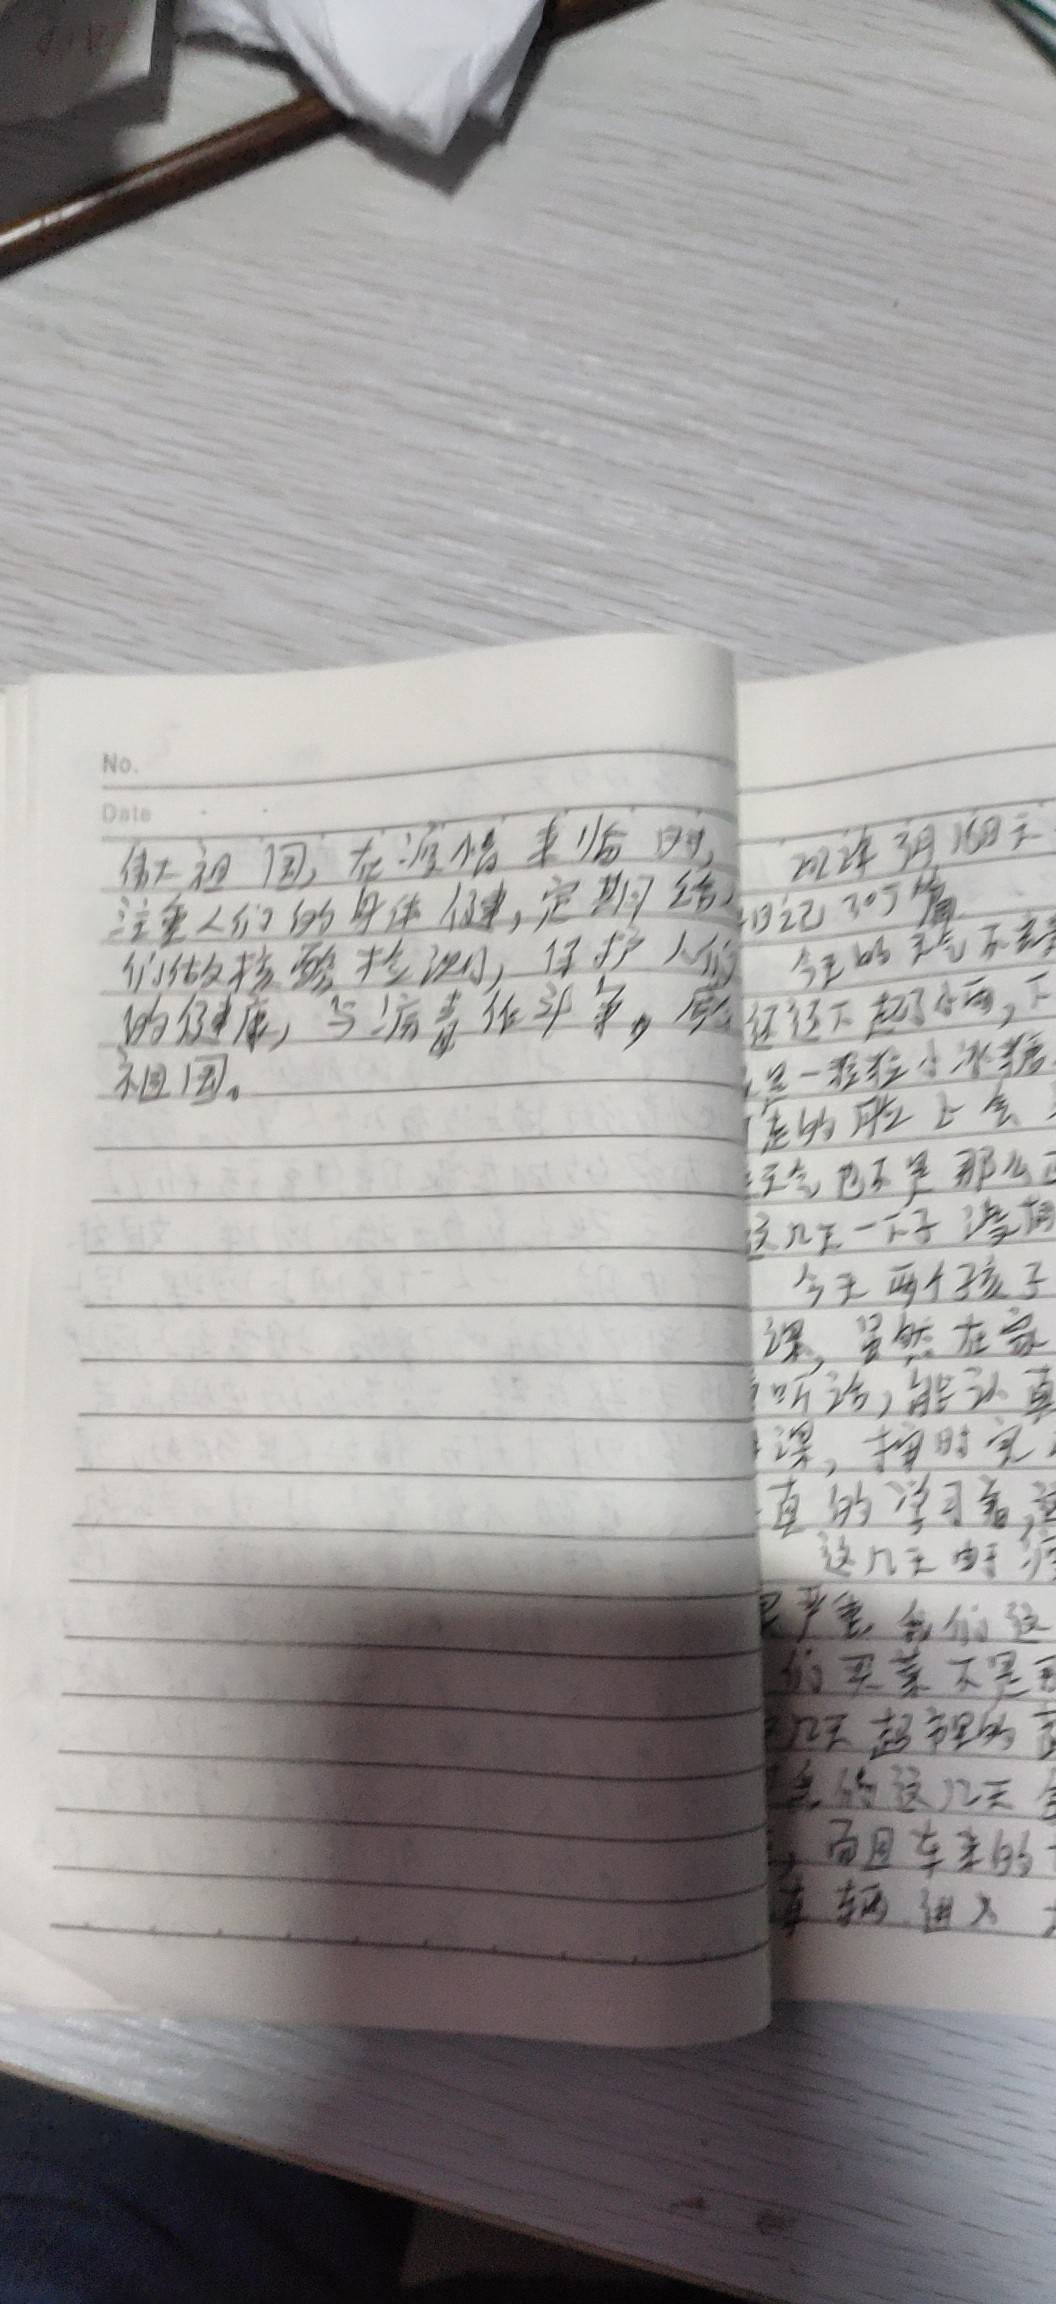 No.
Date
伟大祖国，在疫情来临时，
注重人们的身体健，定期给人
们做核酸检测，保护人们
的健康，与病毒作斗争，感
祖国。
2022年3月16日天
日记307篇
今天的天气不
还这下起了小雨，下
是一粒粒小冰糖
走的脸上会
天气也不是那么
这几天一下子
今天两个孩子
课，虽然在家
听话，能认真
课，按时完
真的学习着，
这几天由于
严重 我们这
们买菜不是
几天超市里的
的这几天
，而且车来的
车辆进入